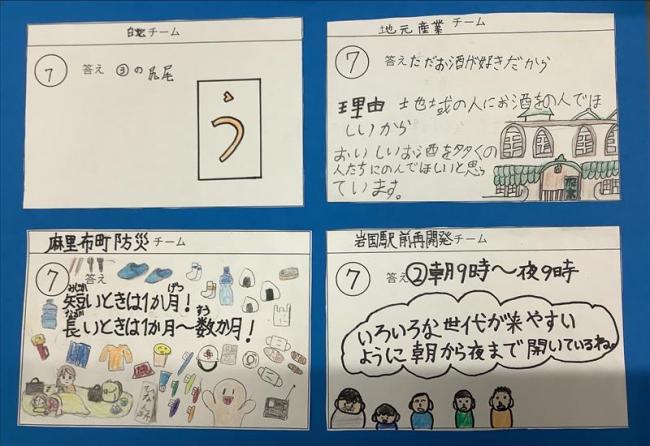 白蛇チーム
⑦
答え ③の尻尾
う
地元産業チーム
⑦
答え ただお酒が好きだから
理由 地域の人にお酒をの人でほ
しいから
おいしいお酒を多くの
人たちにのんでほしいと思っ
ています。
麻里布町防災チーム
⑦
答え
短いときは1か月！
長いときは1か月〜数か月！
岩国駅前再開発チーム
⑦
答え ②朝9時〜夜9時
いろいろな世代が来やすい
ように朝から夜まで開いているね。